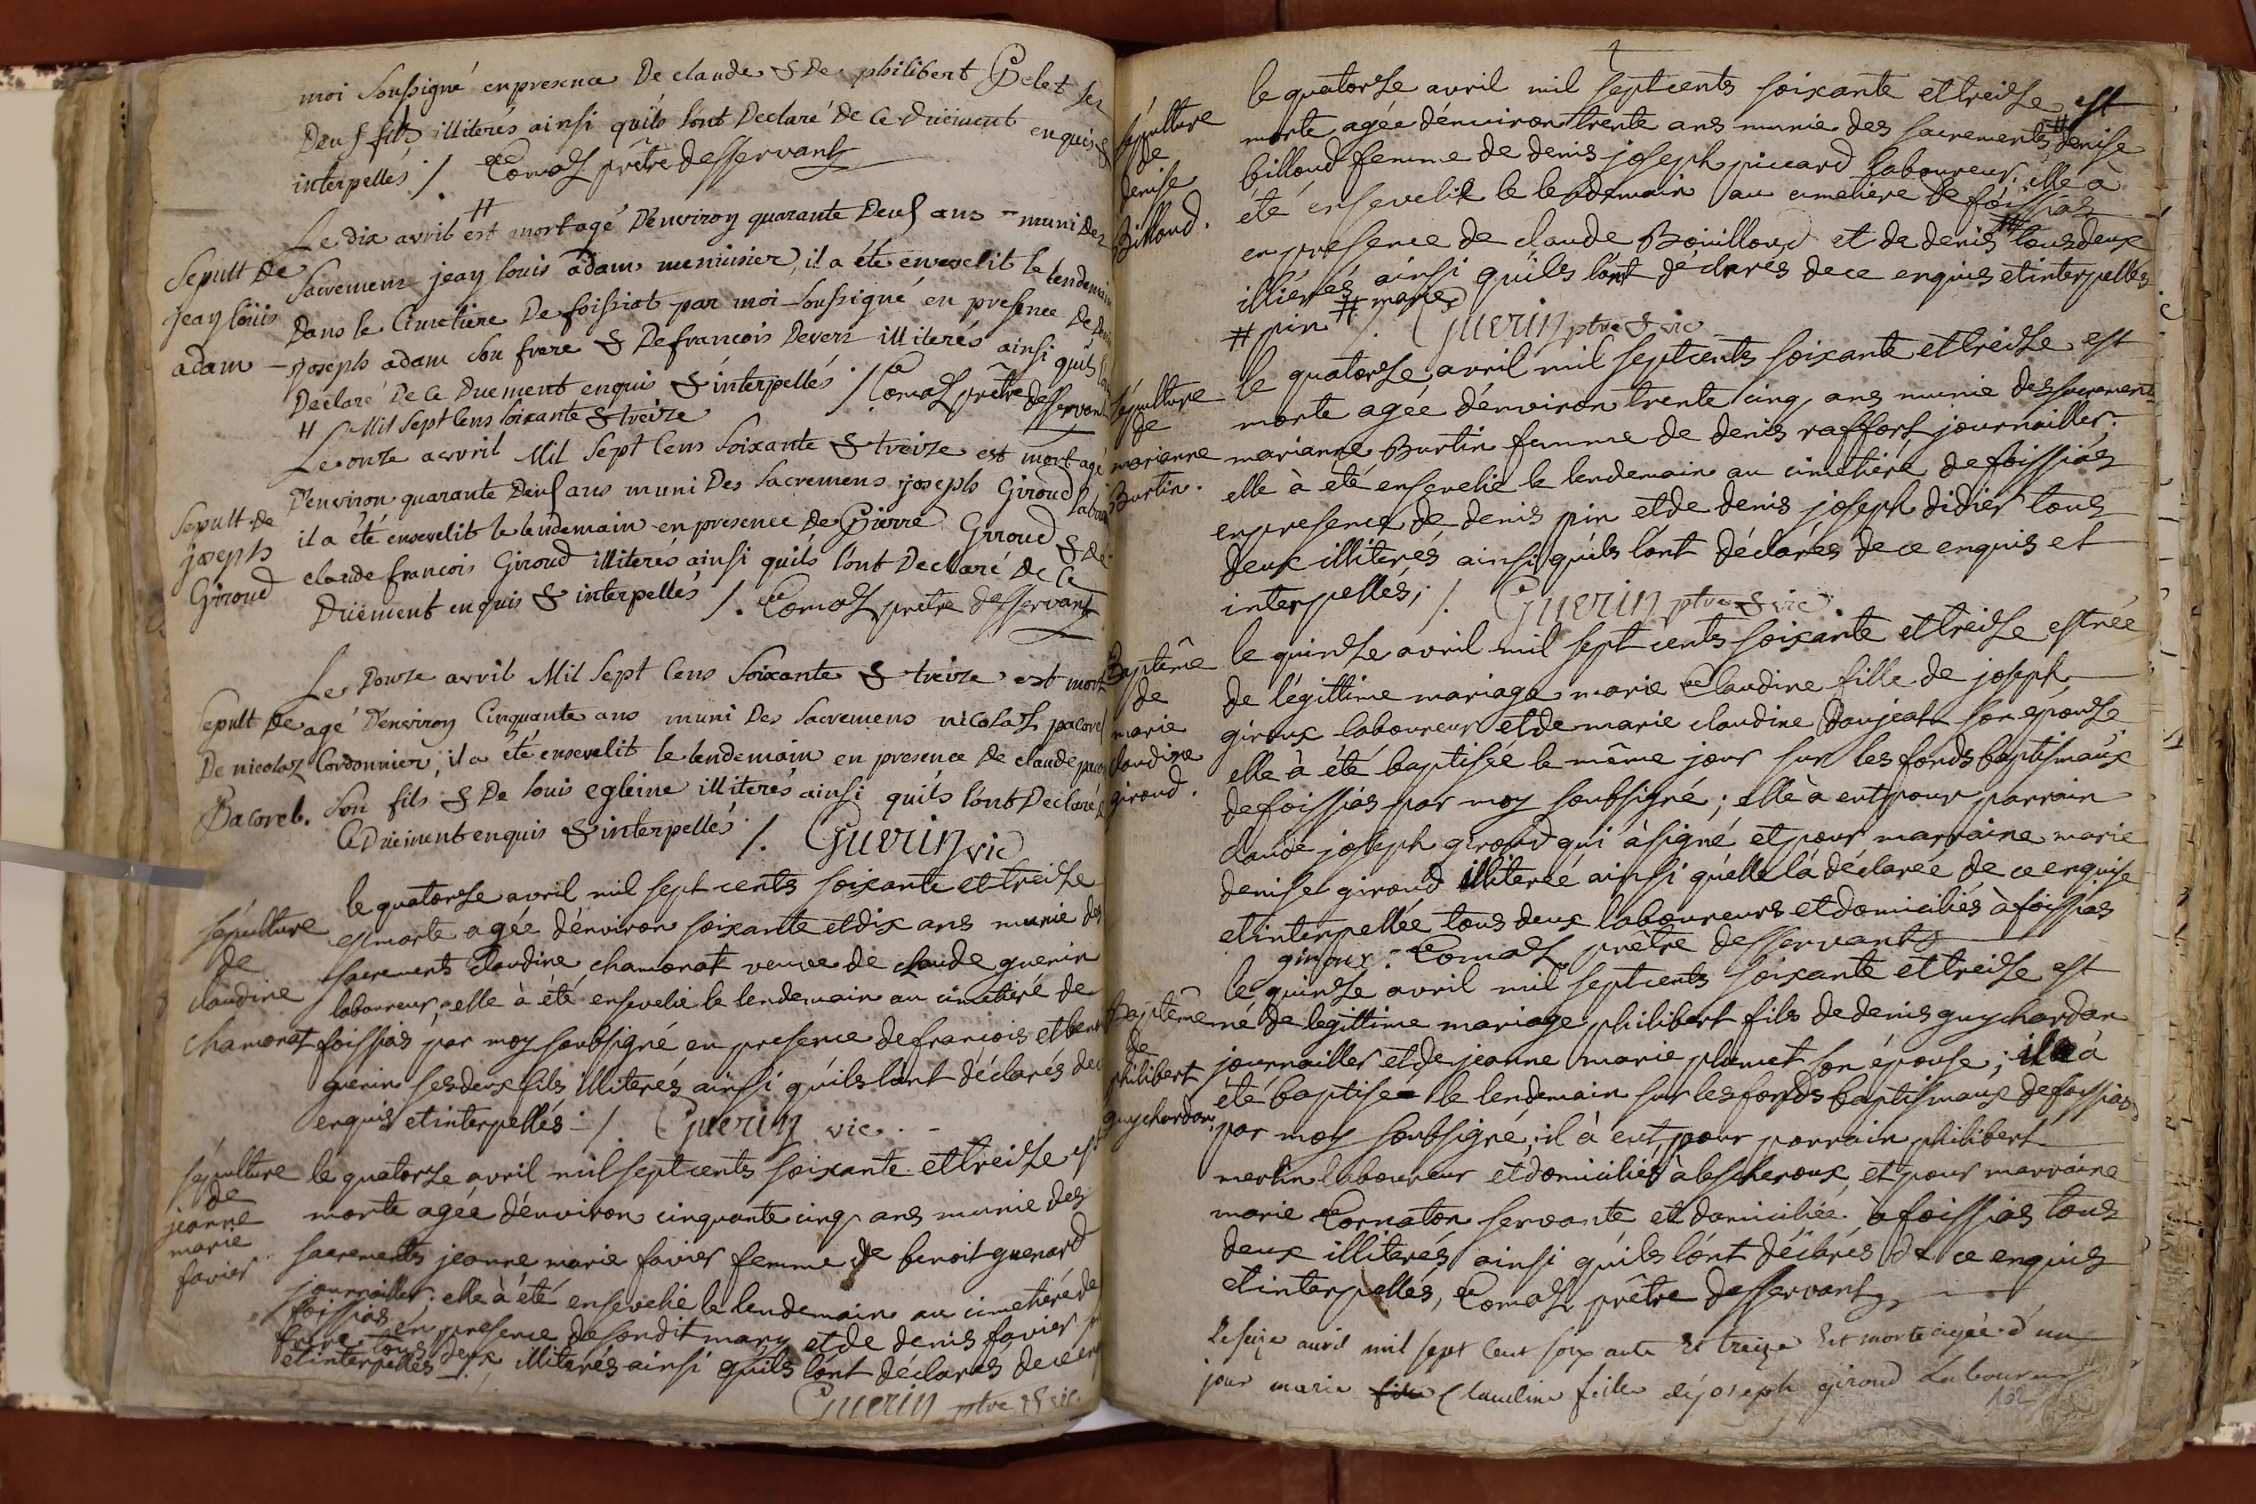 moi soussigné en presence De claude & De philibert Pelet ses
Deux fils illiterés ainsi qu'ils l'ont Declaré de ce Düement enquis &
interpellés /. Comas prêtre desservant
Sepult De
jean loüis
adam
Le dix avril # est mort agé D'environ quarante Deux ans muni des
Sacremens jean louis adam menuisier, il a été ensevelit le lendemain
Dans le Cimetiere De foissiat par moi soussigné en presence De Denis
joseph adam son frere & De francois Devers illiterés ainsi qu'ils l'ont
Declaré De ce Duement enquis & interpellés /. Comas prêtre desservant
# Mil Sept Cens Soixante & treize
Sepult De
joseph
Giroud
Le onze avril Mil Sept Cens Soixante & treize est mort agé
D'environ quarante Deux ans muni Des Sacremens joseph Giroud labour
il a été ensevelit le lendemain en presence De Pierre Giroud & De
claude francois Giroud illiterés ainsi qu'ils l'ont Declaré De ce
Düement enquis & interpellés /. Comas prêtre desservant
Sepult De
De nicolas
Pacoret.
Le Douze avril Mil Sept Cens Soixante & treize est mort
agé D'environ Cinquante ans muni Des Sacremens nicolas pacoret
Cordonnier, il a été ensevelit le lendemain en presence De claude
son fils & De louis egleine illiterés ainsi qu'ils l'ont Declaré
Ce Düement enquis & interpellés /. Guerin vic
sépulture
de
claudine
chamonat
le quatorze avril mil sept cents soixante et treize
est morte agée d'environ soixante et dix ans munie des
sacrements claudine chamonat veuve de claude guerin
laboureur; elle à été ensevelie le lendemain au cimetiére de
foissias par moy soubsigné en presence de francois et
guerin ses deux fils, illiterés ainsi qu'ils l'ont déclarés de
enquis et interpellés /. Guerin vic.
sépulture
de
jeanne
marie
favier
le quatorze avril mil sept cents soixante et treize est
morte agée d'environ cinquante cinq ans munie des
sacrements jeanne marie favier femme de benoit guenard
journailler; elle à été ensevelie le lendemain au cimetiére de
foissias en presence de sondit mary et de denis favier
frere tous deux illiterés ainsi qu'ils l'ont déclarés de ce
et interpellés /.
Guerin ptre & vic.
sépulture
de
denise
Billoud.
le quatorze avril mil sept cents soixante et treize est
morte agée d'environ trente ans munie des sacrements # denise
billoud femme de denis joseph piccard laboureur; elle à
été ensevelie le lendemain au cimetiére de foissias
en presence de claude Bouilloud et de denis # tous deux
illiterés ainsi qu'ils l'ont déclarés de ce enquis et interpellés
# pin # marie /. Guerin ptre & vic
sépulture
de
marianne
Burtin.
le quatorze avril mil sept cents soixante et treize est
morte agée d'environ trente cinq ans munie des sacrements
marianne Burtin femme de denis raffort journailler;
elle à été ensevelie le lendemain au cimetiére de foissias
en presence de denis pin et de denis joseph didier tous
deux illiterés ainsi qu'ils l'ont déclarés de ce enquis et
interpellés; /. Guerin ptre & vic.
Baptême
de
marie
claudine
giroud.
le quinze avril mil sept cents soixante et treize est née
de légittime mariage marie claudine fille de joseph
giroux laboureur et de marie claudine Daujeat son epouse
elle à été baptisée le même jour sur les fonds baptismaux
de foissias par moy soubsigné; elle à eut pour parrain
claude joseph giroud qui à signé et pour marraine marie
denise giroud illiterée ainsi qu'elle l'a déclarée de ce enquise
et interpellée tous deux laboureurs et domiciliés à foissias
giroux . Comas prêtre desservant
Baptême
de
philibert
guychardan
le quinze avril mil sept cents soixante et treize est
né de legittime mariage philibert fils de denis guychardan
journailler et de jeanne marie plumet son épouse; il à
été baptisé le lendemain sur les fonds baptismaux de foissias
par moy soubsigné; il à eut pour parrain philibert
merlin laboureur et domicilié à lescheroux, et pour marraine
marie Cornaton servante et domiciliée à foissias tous
deux illiterés ainsi qu'ils l'ont déclarés de ce enquis
et interpellés, Comas prêtre desservant
Le seize avril mil sept Cent soixante Et treize Est morte agée d'un
jour marie Claudine fille de joseph giroud Laboureur
102